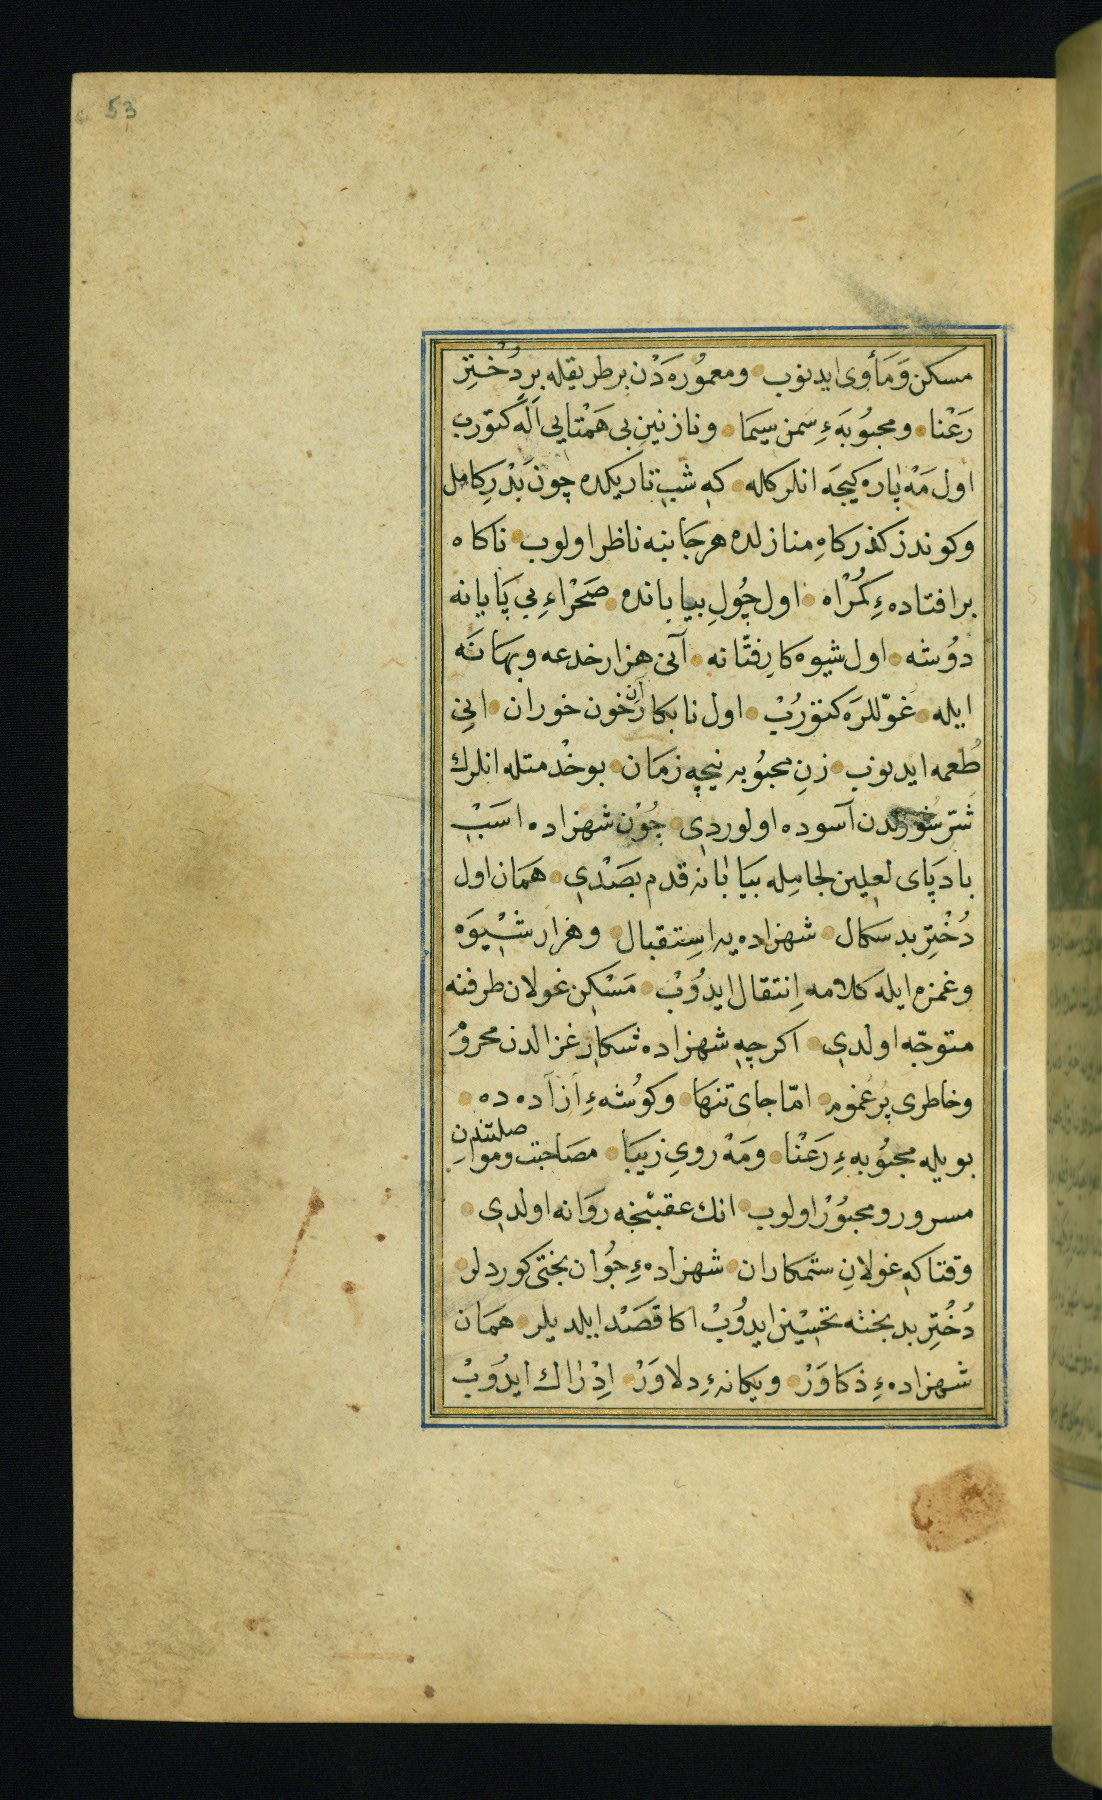 53
مسكن وَمَأوى ايدنوب ومعمُورَه دَن بر طريقله بر دُخترِ
رَعْنا ومحبُوبَهءِ سمن سيَما ونازنينِ بى هَمْتايى اَلَه كتورب
اول مَهْ پاره كيجه انلر كله كه شبِ تاريكده چون بَدْرِ كامل
وكوندز كذركاهِ منازلده هر جانبه ناظر اولوب ناكاه
بر افتادهءِ كمْراه اول چُولِ بيابانده صَحْراءِ بى پايانه
دوُشه اول شيوه كارِ فتّانه آنى هزار خدعه وبهَانَه
ايله غوّللرَه كتورُبْ اول نابكاران خون خوران انىِ
طُعمه ايدنوب زنِ محبُوبه نيچه زمَان بو خْدمتله انلرك
شرّ شورندن آسوده اولوردى چُوْن شهزاده اسَبْ
بادپاى لعلين لجامله بيَابانه قدم بصَدْى همَان اول
دُخْترِ بد سكال شهزاده يه استقبال وهزار شيْوَه
وغمزه ايله كلامه اِنتقال ايدُوبْ مَسْكن غولان طرفنه
متوجّه اولدى اكرچه شهزاده شكارِ غزالدن محرومْ
وخاطرى پر غموم امّا جاى تنهَا وكوُشهءِ آزاده ده
بويله محبُوبهءِ رَعْنا ومَهْ روىِ زيبَا مصَاحبت ومواصلتندن
مسرور ومحبُورْ اولوب انك عقبنجه روَانه اولدى
وقتاكه غولانِ ستمكاران شهزادهءِ جُوان بختى كوردلر
دُخْترِ بد بخته تحسيْن ايدُوبْ اكا قصَدْ ايلديلر همَان
شهزادهءِ ذكاوَرْ ويكانهءِ دلاوَرْ اِدْراك ايدُوبْ